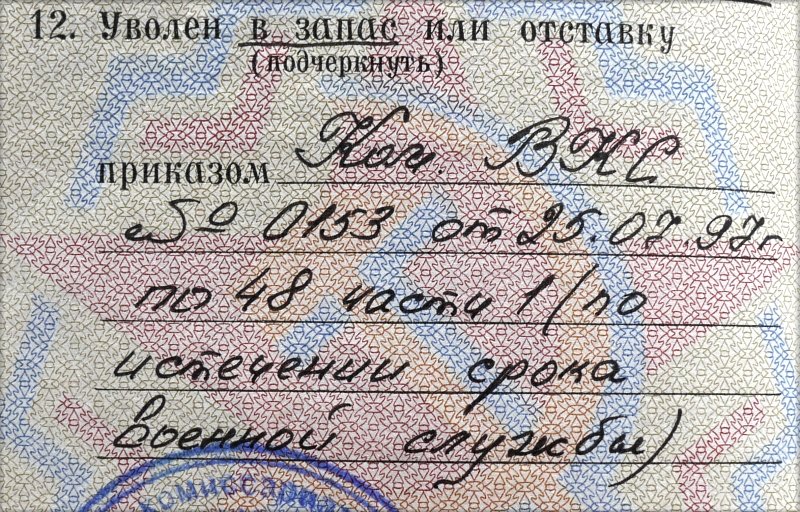 12. Уволен в запас или отставку
(подчеркнуть)
приказом Ком. ВКС
№ 0153 от 25.07.97г
по 48 части 1 (по
истечении срока
военной службы)
комиссариат